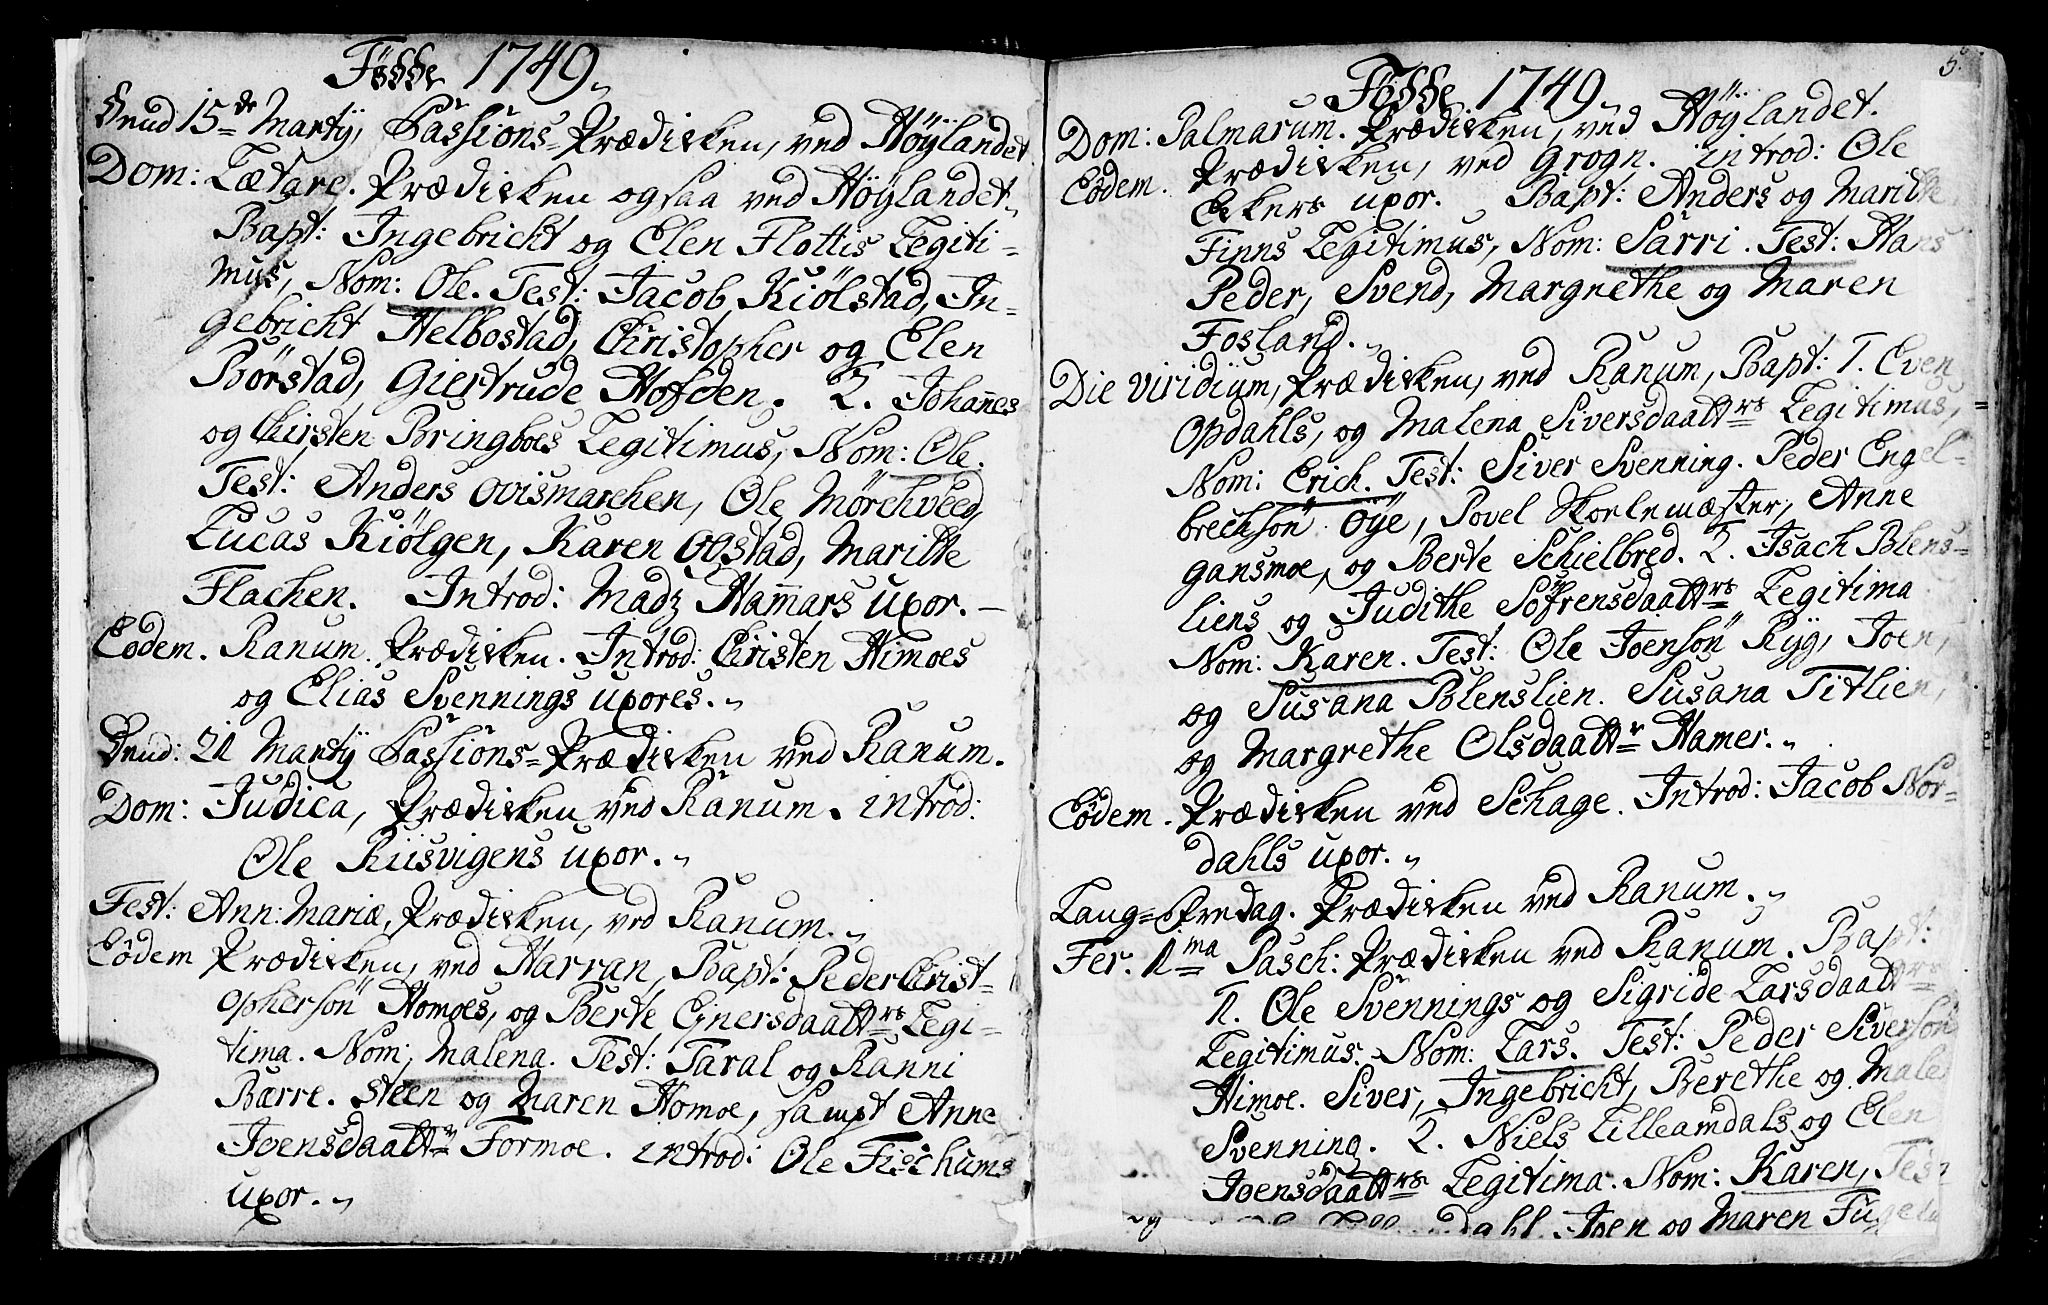 Födde 1749.
Dend 15de Martÿ, Passions-Prædicken, ved Höÿlandet
Dom: Lætare. Prædicken ogsaa ved Höÿlandet.
Bapt: Ingebricht og Elen Flottis Legiti-
mus, Nom: Ole. Test: Jacob Kiölstad, In-
gebricht Helbostad, Christopher og Elen
Börstad, Giertrude Hofden. 2. Johañes
og Kirsten Bringboes Legitimus, Nom: Ole.
Test: Anders Ovismarchen, Ole Mörchveed,
Lucas Kiölgen, Karen Opstad, Marithe
Flachen. Introd: Madz Ham̄ars uxor. —
Eodem. Ranum Prædicken. Introd: Christen Himoes
og Elias Svennings uxores.
Dend: 21 Martÿ Passions-Prædicken ved Ranum.
Dom: Judica, Prædicken ved Ranum. introd:
Ole Riisvigens uxor.
Fest: Ann: Mariæ, Prædicken, ved Ranum.
Eodem Prædicken, ved Harran, Bapt: Peder Christ-
ophersön Homoes, og Berte Ejnersdaattrs Legi-
tima. Nom; Malena. Test: Taral og Ranni
Bærre. Steen og Maren Homoe, sampt Anne
Joensdaattr Formoe. introd: Ole Fischums
uxor.
5.
Födde 1749.
Dom: Palmarum. Prædicken, ved Höÿlandet.
Eodem. Prædicken, ved Grogn. introd: Ole
Eckers uxor. Bapt: Anders og Marithe
Finns Legitimus, Nom: Sarri. Test: Hans
Peder, Svend, Margrethe og Maren
Fosland.
Die viridium, Prædicken, ved Ranum, Bapt: 1. Even
Opdahls, og Malena Siversdaattrs Legitimus,
Nom: Erich. Test: Siver Svenning. Peder Engel-
brechsön Öÿe, Povel Skorlemæster, Anne
Gansmoe, og Berte Schielbred. 2. Isach Blens-
liens og Judithe Söfrensdaattrs Legitima
Nom: Karen. Test: Ole Joensön Rÿg, Joen,
og Susana Blenslien. Susana Titlien,
og Margrethe Olsdaattr Hamer.
Eodem. Prædicken ved Schage. Introd: Jacob Nor-
dahls uxor.
Lang-Fredag. Prædicken ved Ranum.
Fer. 1ma Pasch: Prædicken ved Ranum. Bapt:
1. Ole Svennings og Sigride Larsdaattrs
Legitimus. Nom: Lars. Test: Peder Siversön
Himoe. Siver, Ingebricht, Berethe og Male
Svenning. 2. Niels Lilleamdals og Elen
Joensdaattrs Legitima. Nom: Karen, Test
dahl. Joen og Maren